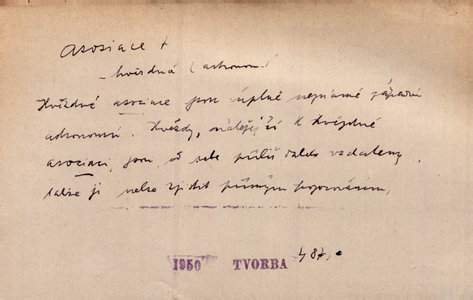 asociace +
– hvězdná (astronom.)
Hvězdné asociace jsou úplně neznámé západní
astronomii. Hvězdy, náležející k hvězdné
asociaci, jsou od sebe příliš daleko vzdáleny,
takže ji nelze zjistit přímým pozorováním.
1950 TVORBA 487,